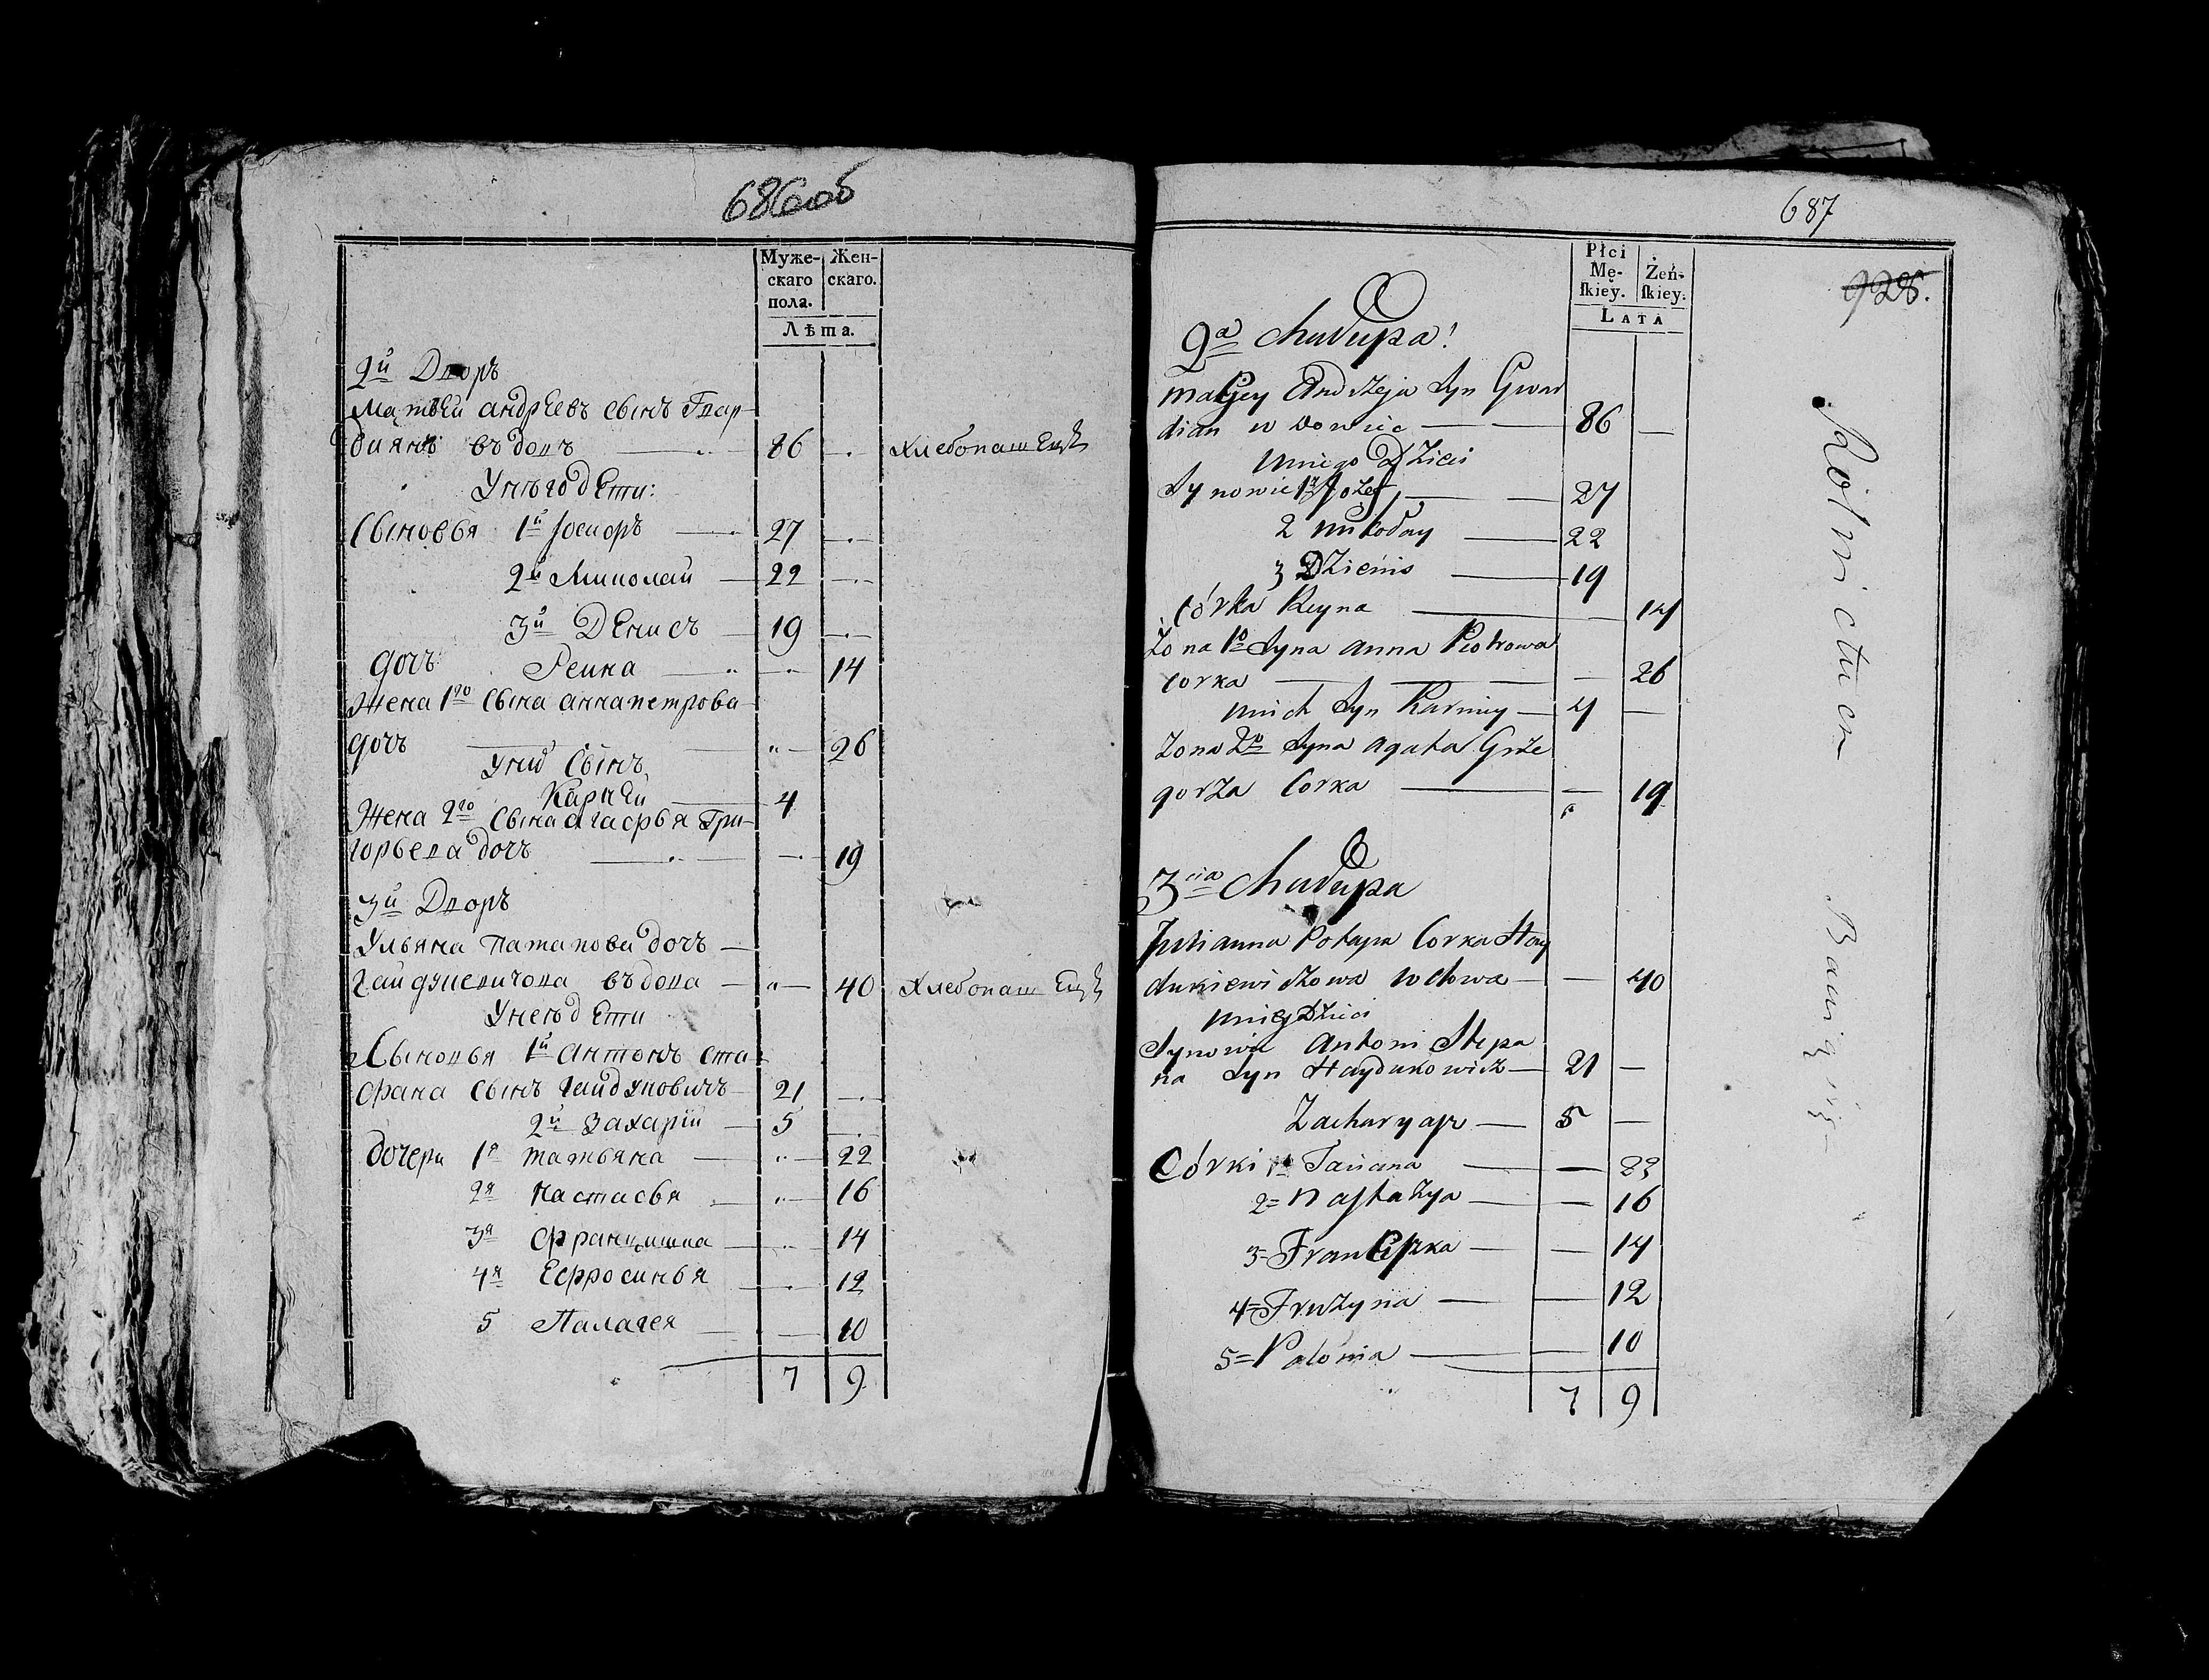 686об
Муже-
скаго
пола.
Жен-
скаго.
Лѣта.
2й Дворъ
Матвей андреевъ сынъ Гвар-
диянъ въдовъ — 86 —
Хлебопашецъ
Унего дети:
Сыновья 1й Іосиоръ — 27 —
2й Миколай — 22 —
3й Денисъ — 19 —
дочь Реина — — 14
Жена 1го сына анна петрова
дочь — — 26
Уних Сынъ
Карней — 4
Жена 2го сына агафья Гри-
горьева дочь — — 19
3й Дворъ
Ульяна Патапова дочъ —
гайдукевичова въдова — — 40
Хлебопашецъ
Унеё дети
Сыновья 1й антонъ сте-
фана сынъ гайдуковичъ 21 —
2й Захарій — 5
дочери 1я татьяна — — 22
2я настасья — — 16
3я францишка — — 14
4я Ефросинья — — 12
5 Палагея — — 10
7 9
687
928.
Płci
Mę-
ſkiey.
Żeń-
ſkiey.
LATA
2a Chałupa!
Maciey Andrzeja Syn Gwar
dian wdowiec — — 86 —
u niego Dzieci
Synowie 1szy Jozef, — — 27
2 Mikołay — 22
3 Dzienis — 19
Córka Reyna — — 14
Zona 1o Syna anna Piotrowa
corka — — — 26
unich Syn Karniey — 4 —
Zona 2o Syna agata Grze
gorza Corka — — 19
3cia Chałupa
Julianna Potapa Corka Hay
dukiewiczowa wdowa — — 40
u niey Dzieci
Synowie Antoni Stepa
na Syn Haydukowicz — 21 —
Zacharyasz — 5 —
Córki 1a Taciana — — 22
2= Nastazya — — 16
3= Franciszka — — 14
4= Fruzyna — — 12
5= Palonia — — 10
7 9
Rolnictwem
Bawią się